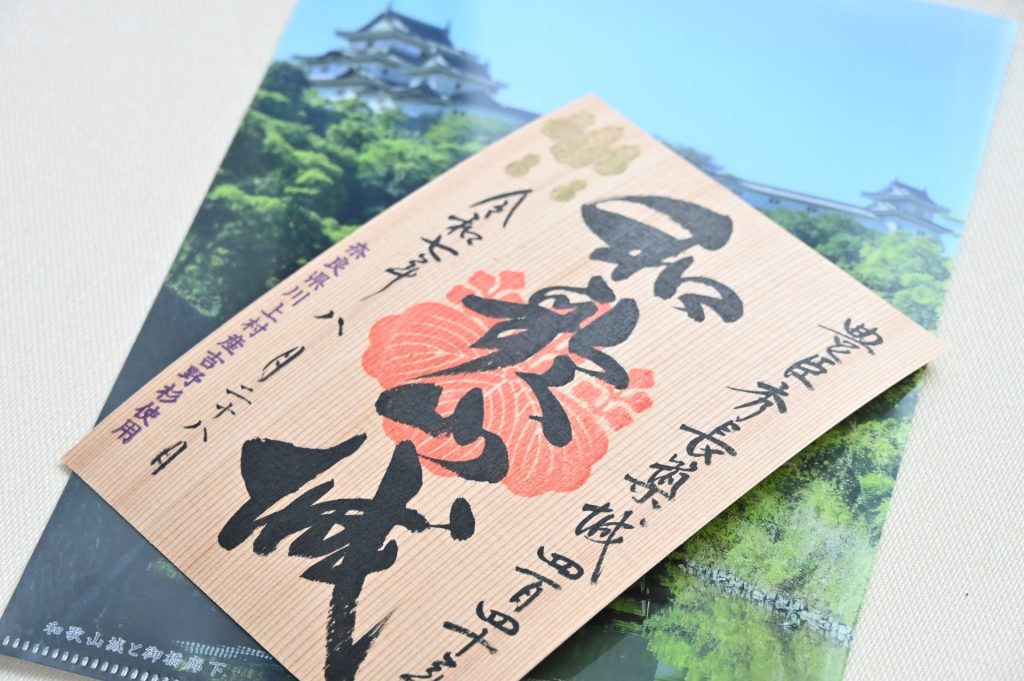 豊臣秀長築城四百四十
和歌山城
令和七年八月二十八日
奈良県川上村産吉野杉使用
和歌山城と御橋廊下